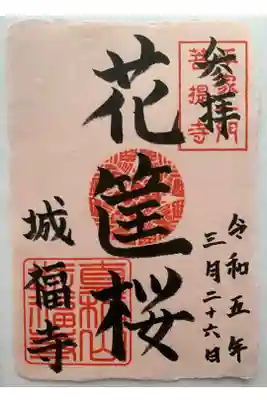 参拝
令和五年
三月二十六日
花筐桜
城福寺
菩提寺